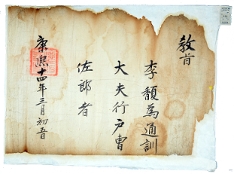 教旨
李馥爲通訓
大夫行戶曹
佐郎者
康熙十四年三月初五日